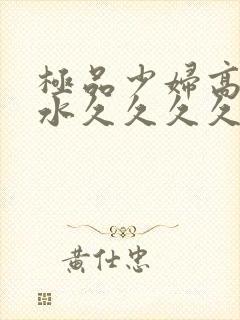 極品少婦高
水久久久久
黄仕忠